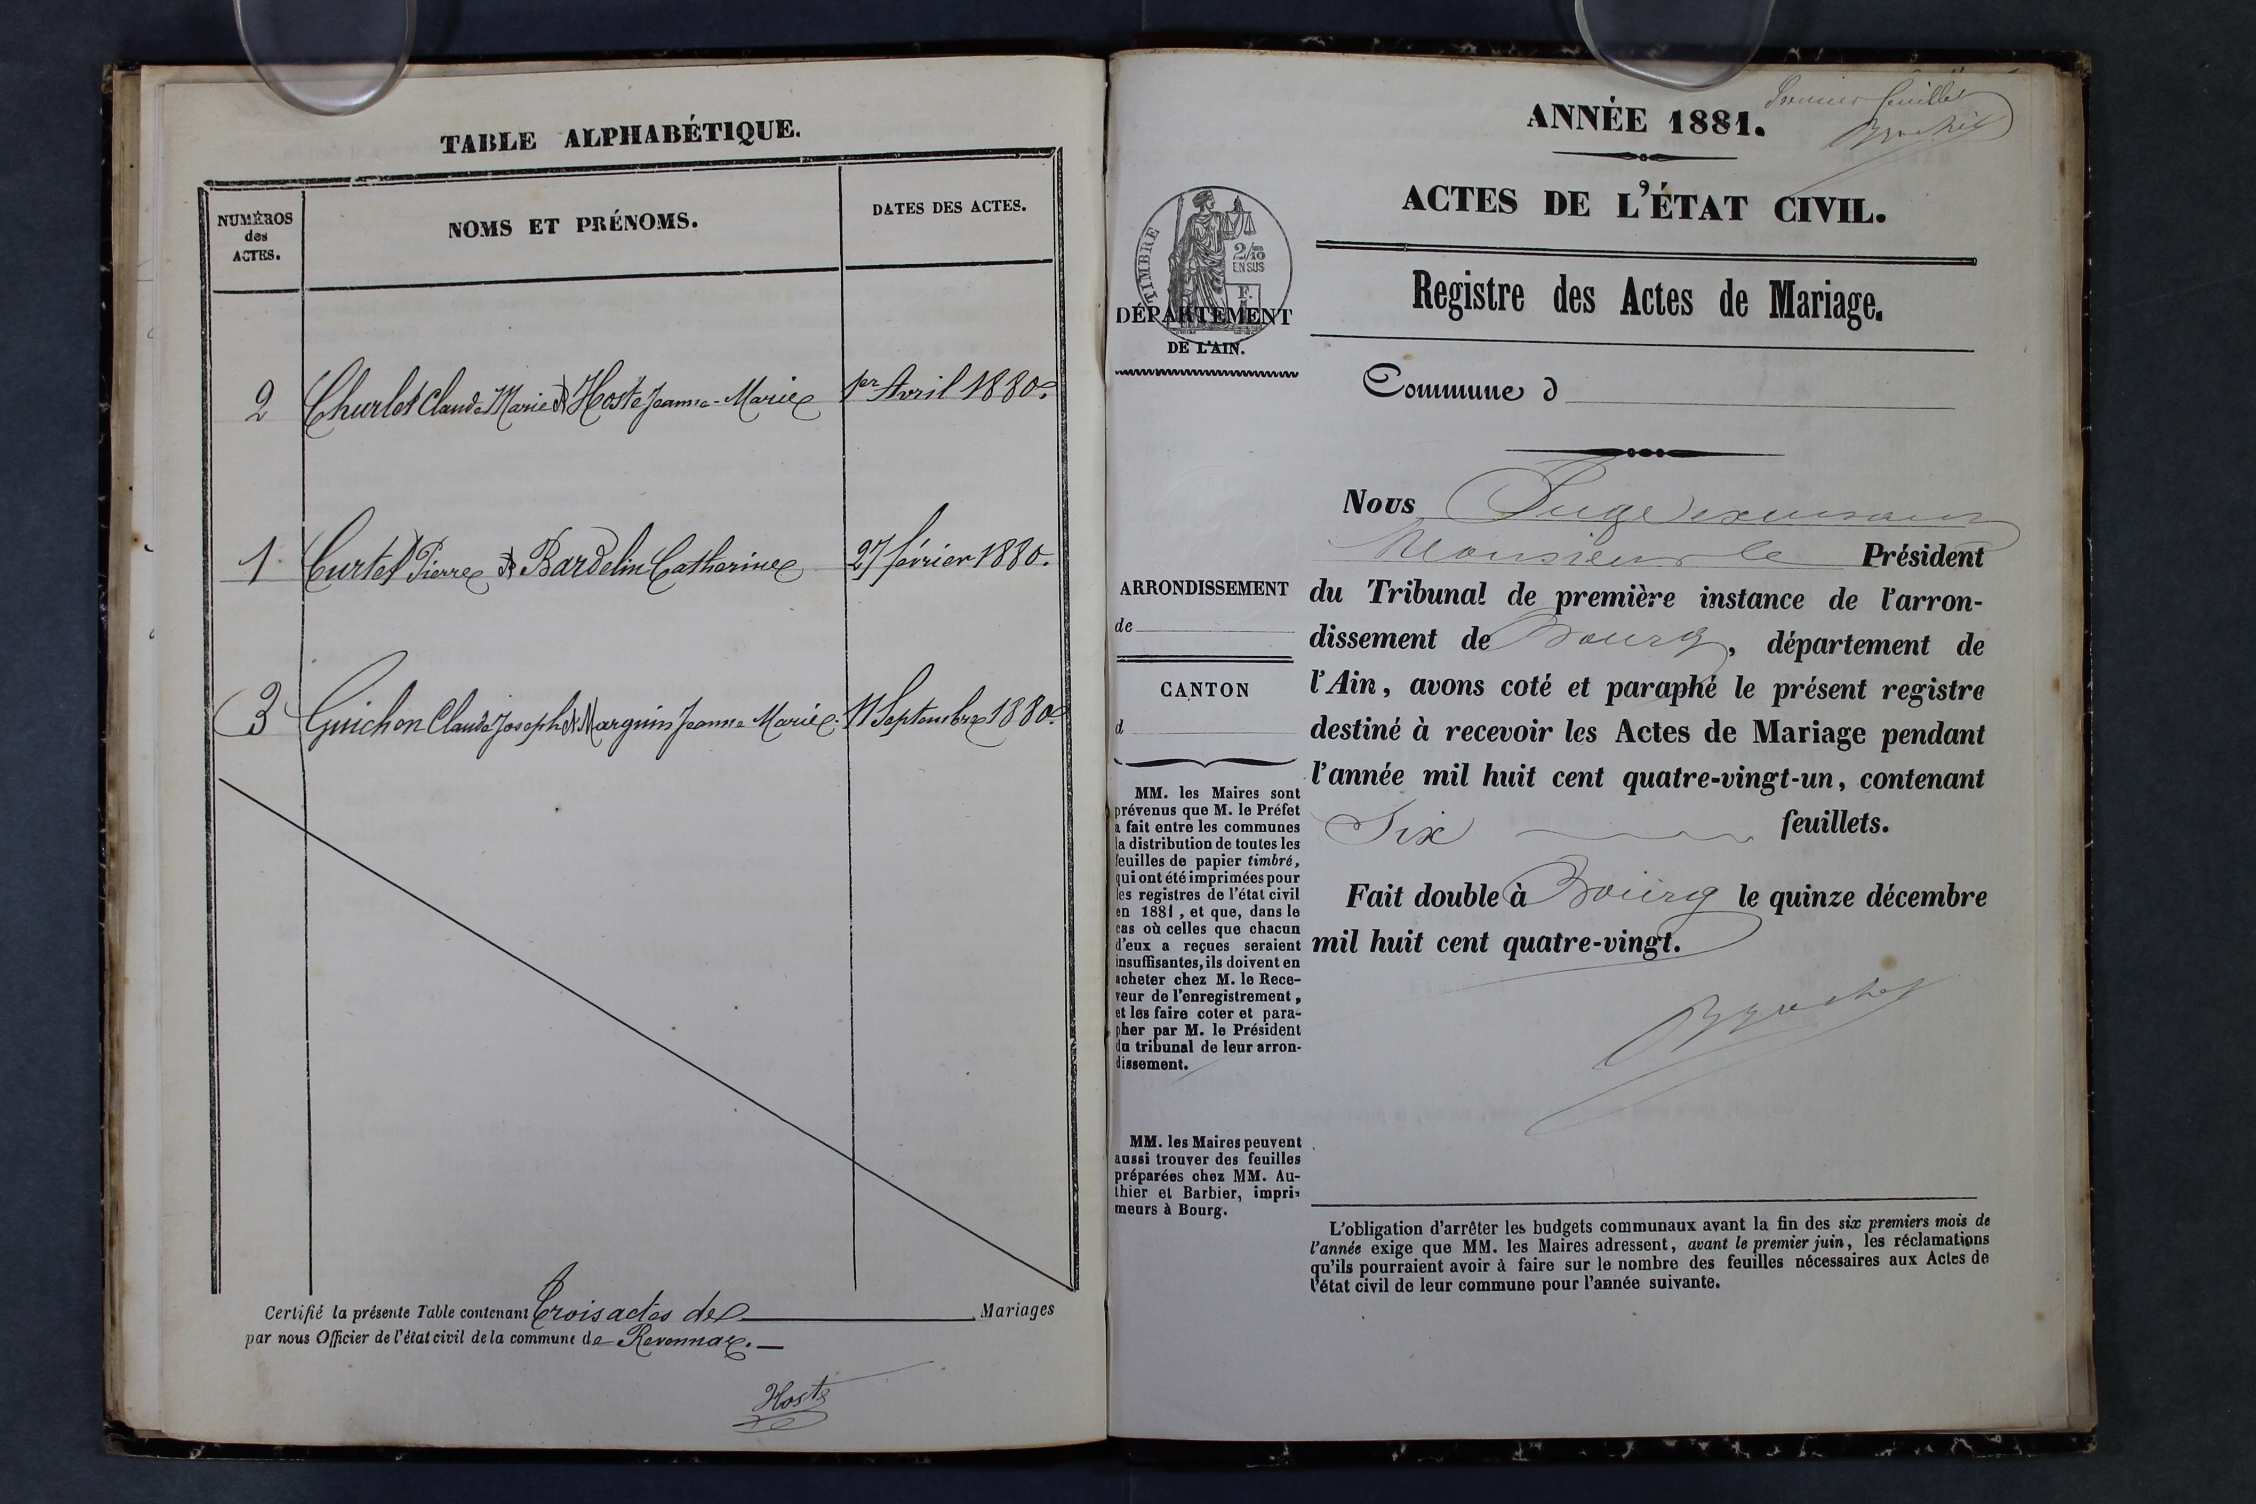 TABLE ALPHABÉTIQUE.
NUMÉROS
des
ACTES.
NOMS ET PRÉNOMS.
DATES DES ACTES.
2 Churlet Claude Marie & Hoste Jeanne-Marie 1er Avril 1880.
1 Curtet Pierre & Bardelin Catherine 27 février 1880.
3 Guichon Claude Joseph & Marguin Jeanne Marie 11 Septembre 1880.
Certifié la présente Table contenant Trois actes de Mariages
par nous Officier de l'état civil de la commune de Revonnas.
Hoste
Premier feuillet
ANNÉE 1881.
ACTES DE L'ÉTAT CIVIL.
Registre des Actes de Mariage.
TIMBRE
2/10
EN SUS
F.
DÉPARTEMENT
DE L'AIN.
Commune d
ARRONDISSEMENT
de
CANTON
d
MM. les Maires sont
prévenus que M. le Préfet
a fait entre les communes
la distribution de toutes les
feuilles de papier timbré,
qui ont été imprimées pour
les registres de l'état civil
en 1881, et que, dans le
cas où celles que chacun
d'eux a reçues seraient
insuffisantes, ils doivent en
acheter chez M. le Rece-
veur de l'enregistrement,
et les faire coter et para-
pher par M. le Président
du tribunal de leur arron-
dissement.
MM. les Maires peuvent
aussi trouver des feuilles
préparées chez MM. Au-
thier et Barbier, impri-
meurs à Bourg.
Nous Juge
Monsieur le Président
du Tribunal de première instance de l'arron-
dissement de Bourg, département de
l'Ain, avons coté et paraphé le présent registre
destiné à recevoir les Actes de Mariage pendant
l'année mil huit cent quatre-vingt-un, contenant
Six feuillets.
Fait double à Bourg le quinze décembre
mil huit cent quatre-vingt.
L'obligation d'arrêter les budgets communaux avant la fin des six premiers mois de
l'année exige que MM. les Maires adressent, avant le premier juin, les réclamations
qu'ils pourraient avoir à faire sur le nombre des feuilles nécessaires aux Actes de
l'état civil de leur commune pour l'année suivante.